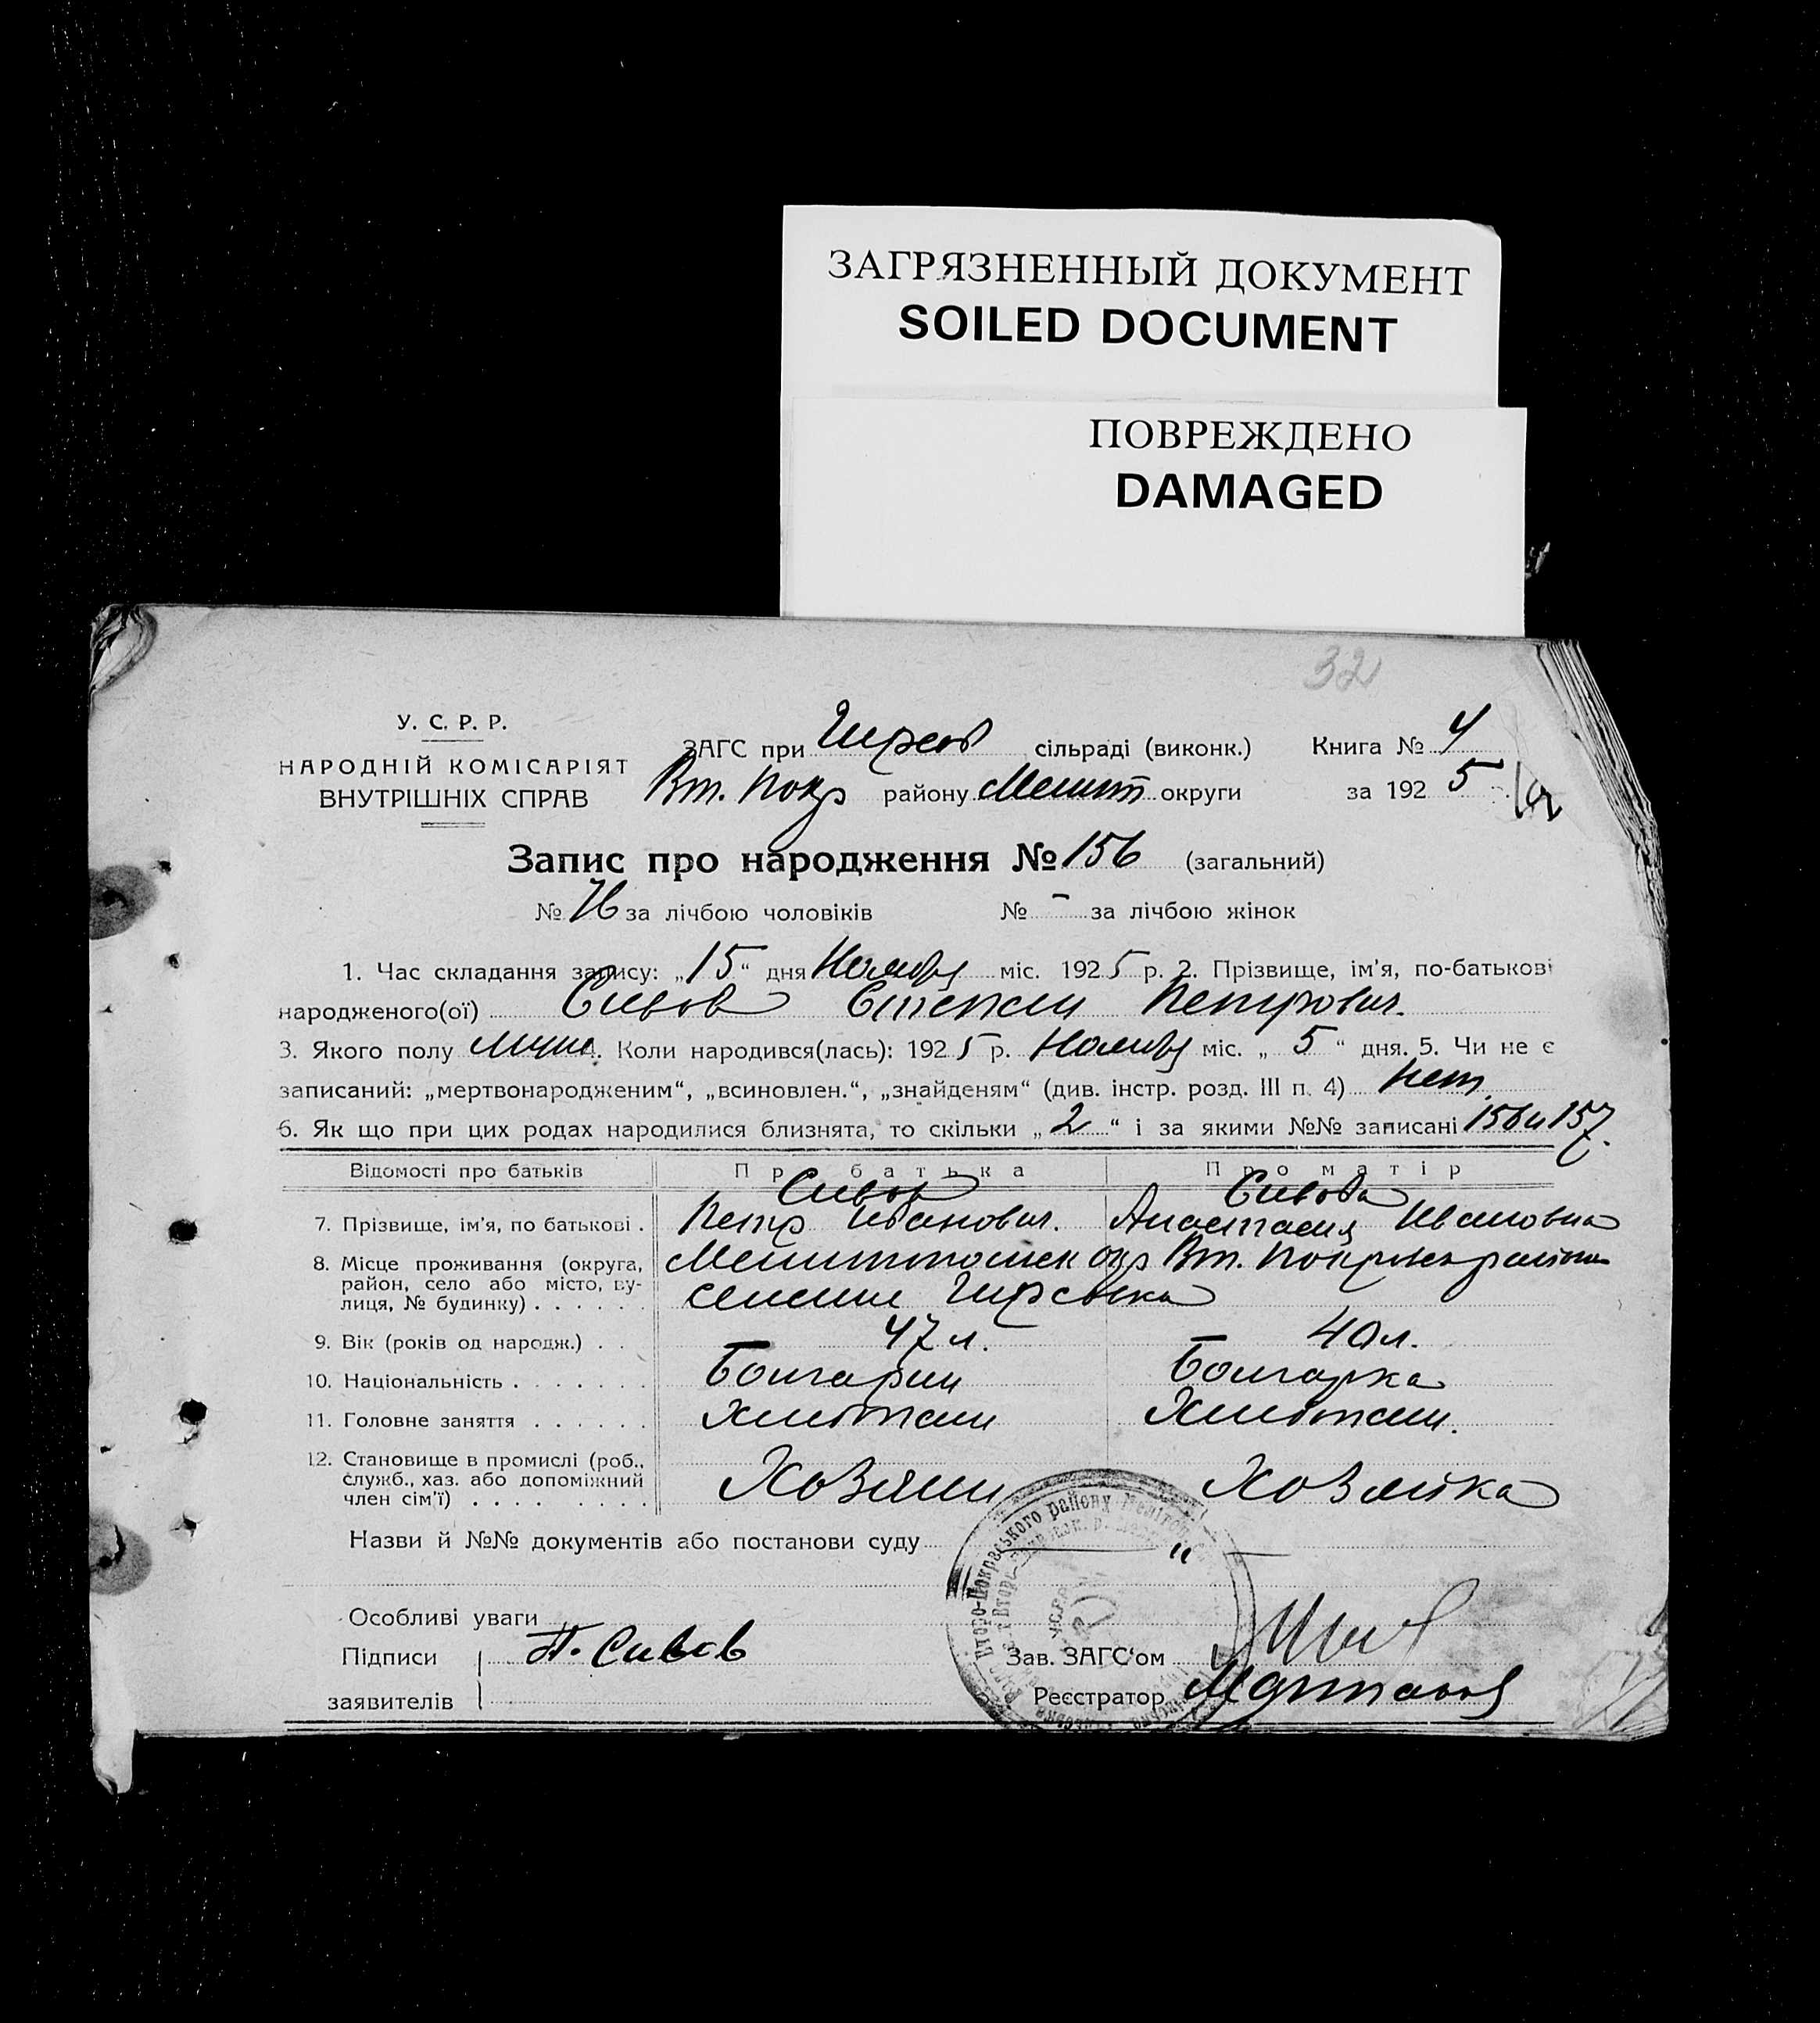 ЗАГРЯЗНЕННЫЙ ДОКУМЕНТ
SOILED DOCUMENT
ПОВРЕЖДЕНО
DAMAGED
32
У. С. Р. Р.
НАРОДНІЙ КОМІСАРІЯТ
ВНУТРІШНІХ СПРАВ
ЗАГС при Гирсов сільраді (виконк.) Книга № 4
Вт. Покр району Мелит округи за 1925
Запис про народження № 156 (загальний)
№ 76 за лічбою чоловіків № - за лічбою жінок
1. Час складання запису: „15“ дня Ноября міс. 1925 р. 2. Прізвище, ім'я, по-батькові
народженого(ої) Сивов Степан Петрович.
3. Якого полу Мужс. 4. Коли народився(лась): 1925 р. Ноября міс. „5“ дня. 5. Чи не є
записаний: „мертвонародженим“, „всиновлен.“, „знайденям“ (див. інстр. розд. III п. 4) нет
6. Як що при цих родах народилися близнята, то скільки „2“ і за якими №№ записані 156 и 157.
Відомості про батьків Про батька Про матір
Сивов Сивова
7. Прізвище, ім'я, по батькові . Петр Иванович. Анастасия Ивановна
8. Місце проживання (округа, район, село або місто, вулиця, № будинку) . . . . . . Мелитопольск окр Вт. Покровск района
селение Гирсовка
9. Вік (років од народж.) . . 47 л. 40 л.
10. Національність . . . . . . . Болгарин Болгарка
11. Головне заняття . . . . . . Хлебопаш Хлебопаш.
12. Становище в промислі (роб., служб., хаз. або допоміжний член сім'ї) . . . . . . . . Хозяин Хозяйка
Назви й №№ документів або постанови суду — " —
Особливі уваги
Підписи П. Сивов Зав. ЗАГС'ом
заявителів Реєстратор
Второ-Покровського району Мелітоп.
У.С.Р.Р.